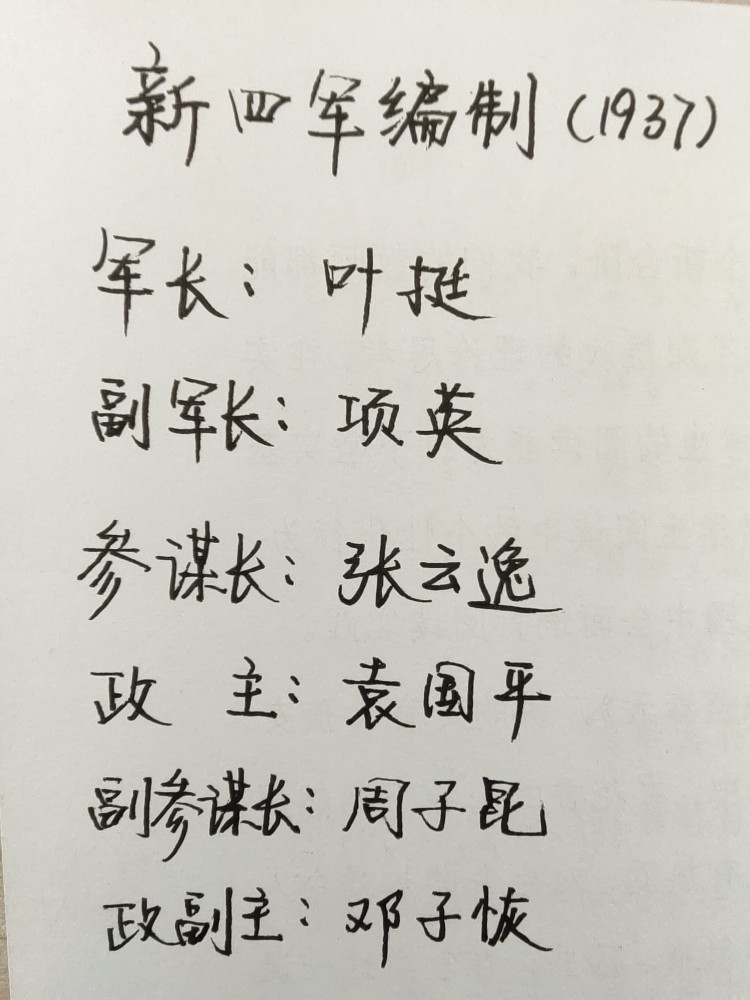 新四军编制(1937)
军长：叶挺
副军长：项英
参谋长：张云逸
政 主：袁国平
副参谋长：周子昆
政副主：邓子恢